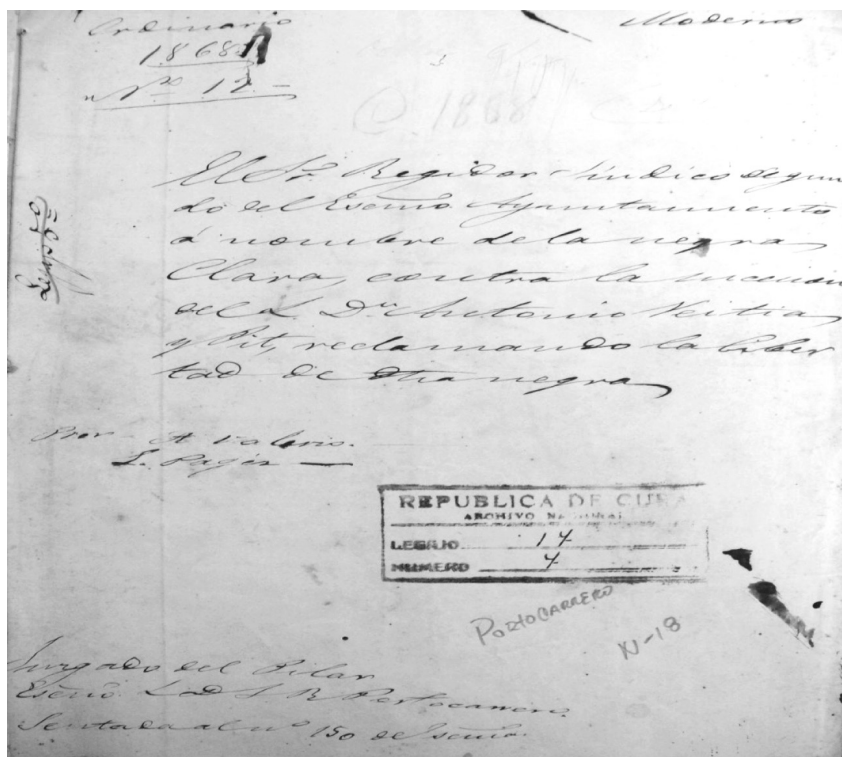 Ordinario
Moderno
1868
Nº 12
@ 1868
El Sr. Regidor Síndico segun
do del Escmo Ayuntamiento
á nombre de la negra
Clara, contra la sucesion
del L. Dn Antonio Veitia
y Pit, reclamando la liber
tad de dha negra
Pror A Valerio.
L. Pagés
REPUBLICA DE CUBA
ARCHIVO NACIONAL
LEGAJO 14
NUMERO 4
PORTOCARRERO
XI-18
Juzgado del Pilar
Escno Ldo J. R. Portocarrero.
Sentada al nº 150 de